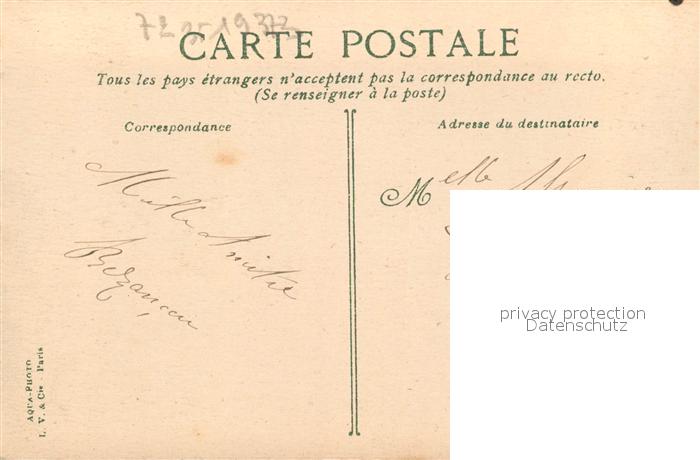 CARTE POSTALE
Tous les pays étrangers n'acceptent pas la correspondance au recto.
(Se renseigner à la poste)
Correspondance
Adresse du destinataire
Mille Amitié
M elle
privacy protection
Datenschutz
AQUA-PHOTO
L. V. & Cie Paris